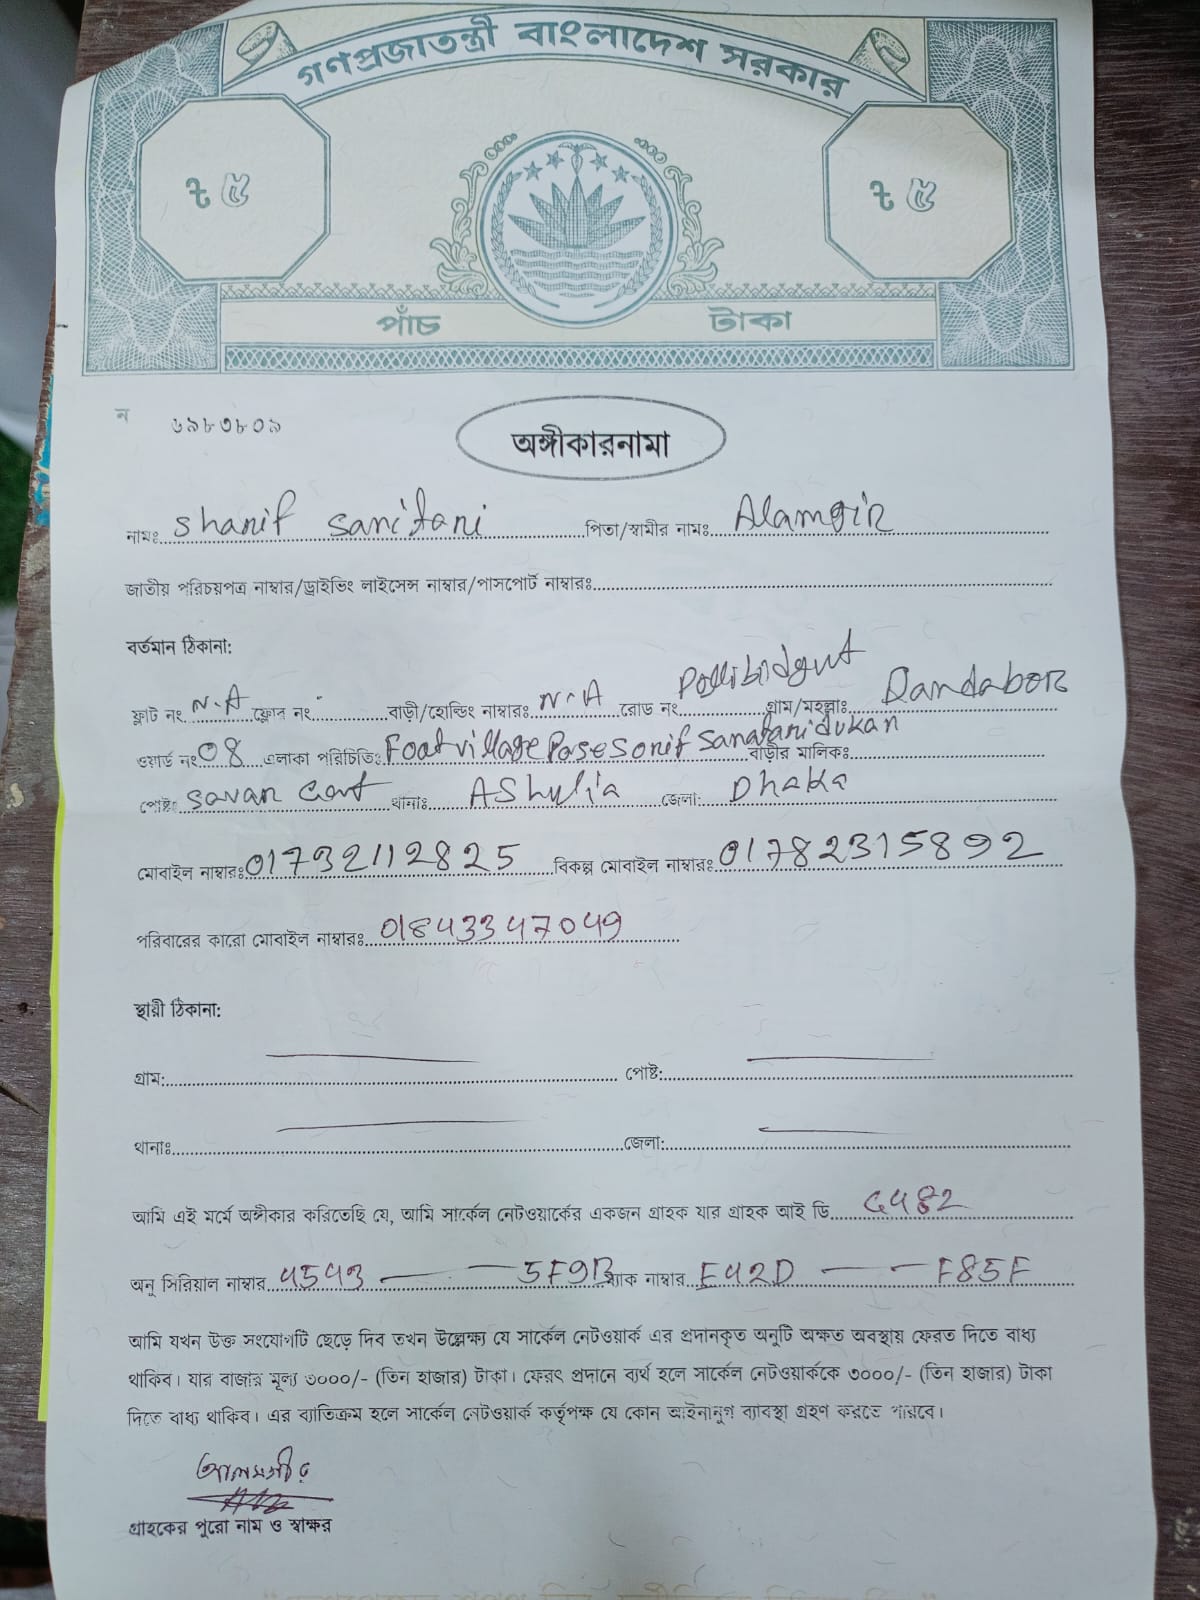 গণপ্রজাতন্ত্রী বাংলাদেশ সরকার
৳ ৫ ৳ ৫
পাঁচ টাকা
ন ৬৯৮৩৮০৯
অঙ্গীকারনামা
নামঃ Sharif Sanitani পিতা/স্বামীর নামঃ Alamgir
জাতীয় পরিচয়পত্র নাম্বার/ড্রাইভিং লাইসেন্স নাম্বার/পাসপোর্ট নাম্বারঃ
বর্তমান ঠিকানা:
ফ্লাট নং N.A ফ্লোর নং বাড়ী/হোল্ডিং নাম্বারঃ N-A রোড নং Pollibidyut গ্রাম/মহল্লাঃ Dandabor
ওয়ার্ড নং 08 এলাকা পরিচিতিঃ Foodvillage Pase Sorif Sanatani dukan বাড়ীর মালিকঃ
পোষ্টঃ Savar Cant থানাঃ AShulia জেলা: Dhaka
মোবাইল নাম্বারঃ 01732112825 বিকল্প মোবাইল নাম্বারঃ 01782315892
পরিবারের কারো মোবাইল নাম্বারঃ 01843347049
স্থায়ী ঠিকানা:
গ্রাম: পোষ্ট:
থানাঃ জেলা:
আমি এই মর্মে অঙ্গীকার করিতেছি যে, আমি সার্কেল নেটওয়ার্কের একজন গ্রাহক যার গ্রাহক আই ডি
অনু সিরিয়াল নাম্বার 4543 — — 5F9B ম্যাক নাম্বার E42D — — F85F
আমি যখন উক্ত সংযোগটি ছেড়ে দিব তখন উল্লেক্ষ্য যে সার্কেল নেটওয়ার্ক এর প্রদানকৃত অনুটি অক্ষত অবস্থায় ফেরত দিতে বাধ্য
থাকিব। যার বাজার মূল্য ৩০০০/- (তিন হাজার) টাকা। ফেরৎ প্রদানে ব্যর্থ হলে সার্কেল নেটওয়ার্ককে ৩০০০/- (তিন হাজার) টাকা
দিতে বাধ্য থাকিব। এর ব্যতিক্রম হলে সার্কেল নেটওয়ার্ক কর্তৃপক্ষ যে কোন আইনানুগ ব্যাবস্থা গ্রহণ করতে পারবে।
আলমগীর
গ্রাহকের পুরো নাম ও স্বাক্ষর